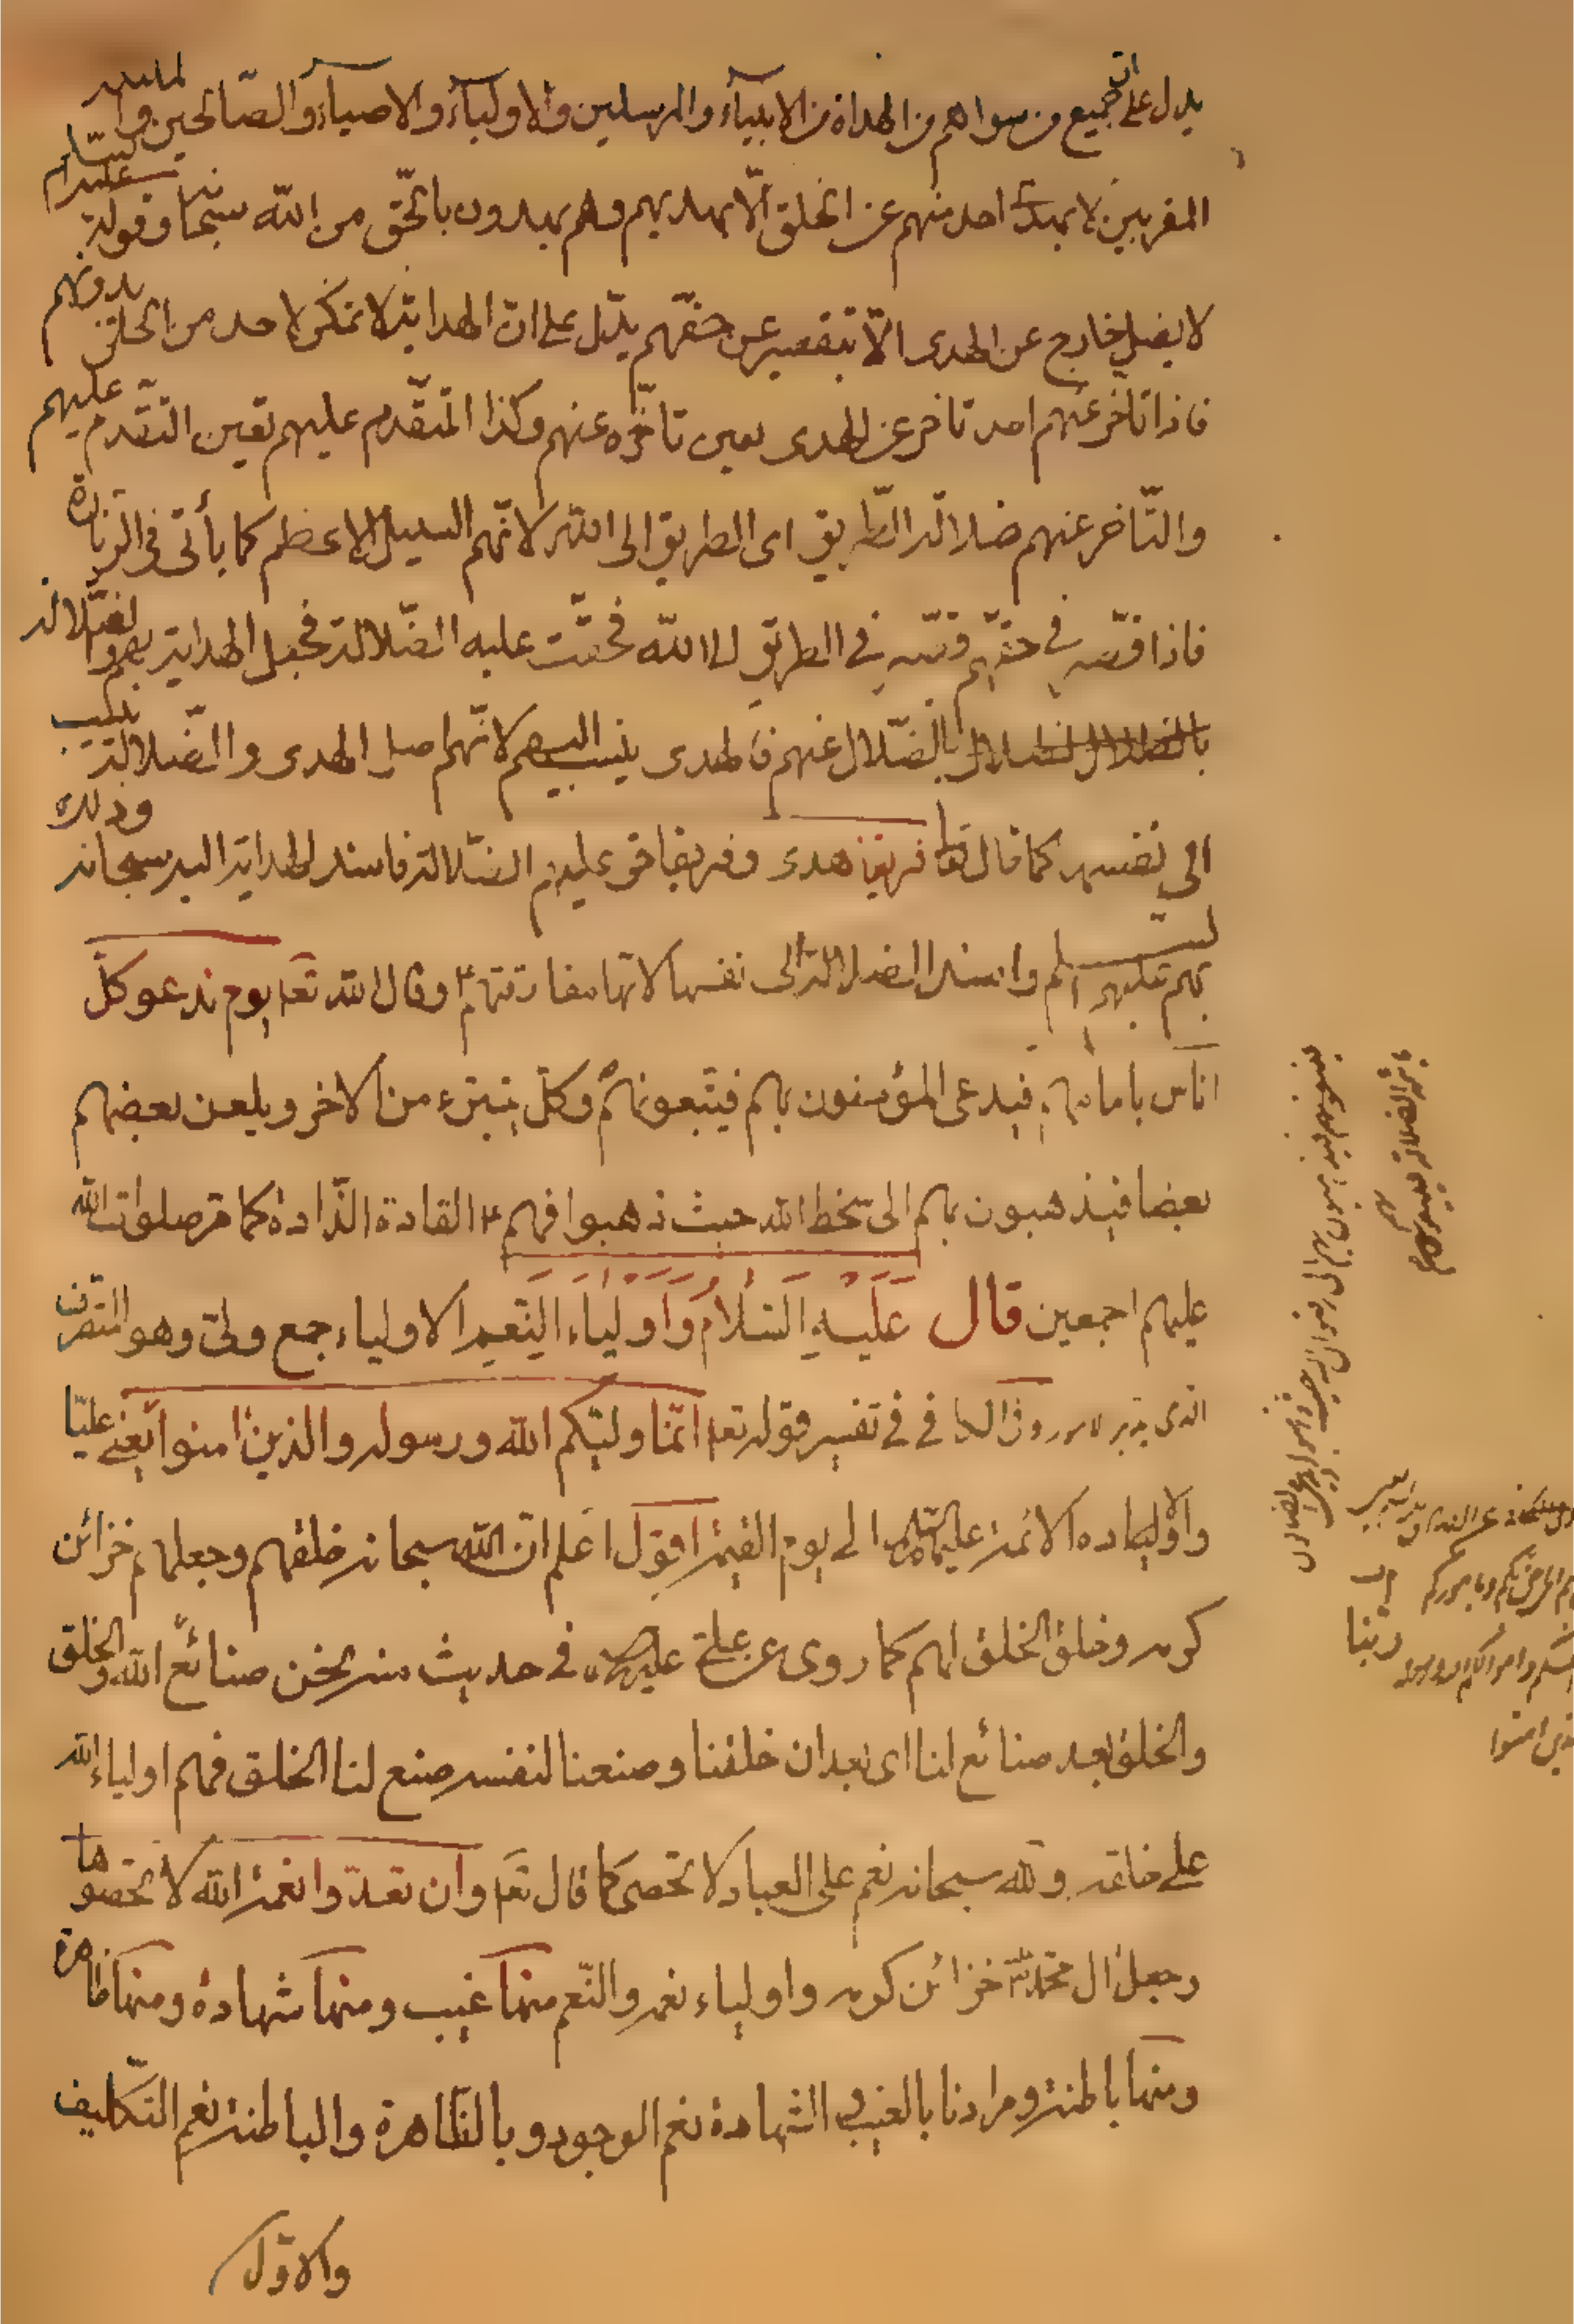 يدل على ان جميع من سواهم من الهداة من الانبيآء والمرسلين والاوليآء والاصيآء والصّالحين و
المقربين لا يهتد احد منهم عن الخلق الّا بهديهم وهم يهدون بالحّق من الله سبحا وقوله عليه السّلام
لا يضل خارج عن الهدى الّا بتقصير عن حقّهم يدّل على انّ الهداية لا تمكن لاحد من الخلق بدونهم
فاذا تاخّر عنهم احد تاخر عن الهدى بعين تاخّره عنهم وكذا المتقّدم عليهم بعين التقّدم عليهم
والتّاخر عنهم ضلالة الطّريق اى الطريق الى الله لانّهم السبيل الاعظم كما يأتى فى الزيارة
فاذا قصّر فى حقّهم قصّر فى الطريق الى الله فحقّت عليه الضّلالة فجعل الهداية بهم والضّلالة
بالضّلال عنهم فالهدى ينسب اليهم لانّهم اصل الهدى والضّلالة ينسب
الى نفسه كما قال تعا فريقا هدى وفريقا حق عليهم الضّلالة فاسند الهداية اليه سبحانه وذلك
بهم عليهم السلم واسند الضلالة الى نفسها لانها مفارقتهم ع وقال الله تعا يوم ندعو كلّ
اناس بامامهم فيدعى المؤمنون بهم فيتبعونهم وكلّ يتبرء من الاخر ويلعن بعضهم
بعضا فيذهبون بهم الى سخط الله حيث ذهبوا فهم ع القادة الذّادة كما مر صلوات الله
عليهم اجمعين قال عَلَيْهِ السَّلَامُ وَاَوْلِيَاءَ النِّعَمِ الاولياء جمع ولىّ وهو المتصرف
الذى يدبر الامور وفى الكا فى فى تفسير قوله تعا انّما وليّكم الله ورسوله والذين امنوا يعنى عليّا
واولاده الائمة عليهم السلام الى يوم القيمة اقول اعلم انّ الله سبحانه خلقهم وجعلهم خزائن
كرمه وخلق الخلق لهم كما روى عن علىّ عليه السلام فى حديث منه نحن صنائع الله والخلق
والخلق بعد صنائع لنا اى بعد ان خلقنا وصنعنا لنفسه صنع لنا الخلق فهم اولياء الله
على خلقه ولله سبحانه نعم على العباد لا تحصى كما قال تعا وان تعدّوا نعمة الله لا تحصوها
وجعل ال محمد ص خزائن كرمه واولياء نعمه والنّعم منها غيب ومنها شهادة ومنها ظاهرة
ومنها باطنة ومرادنا بالغيب والشهادة نعم الوجود وبالظّاهرة والباطنة نعم التّكليف
والاوّل